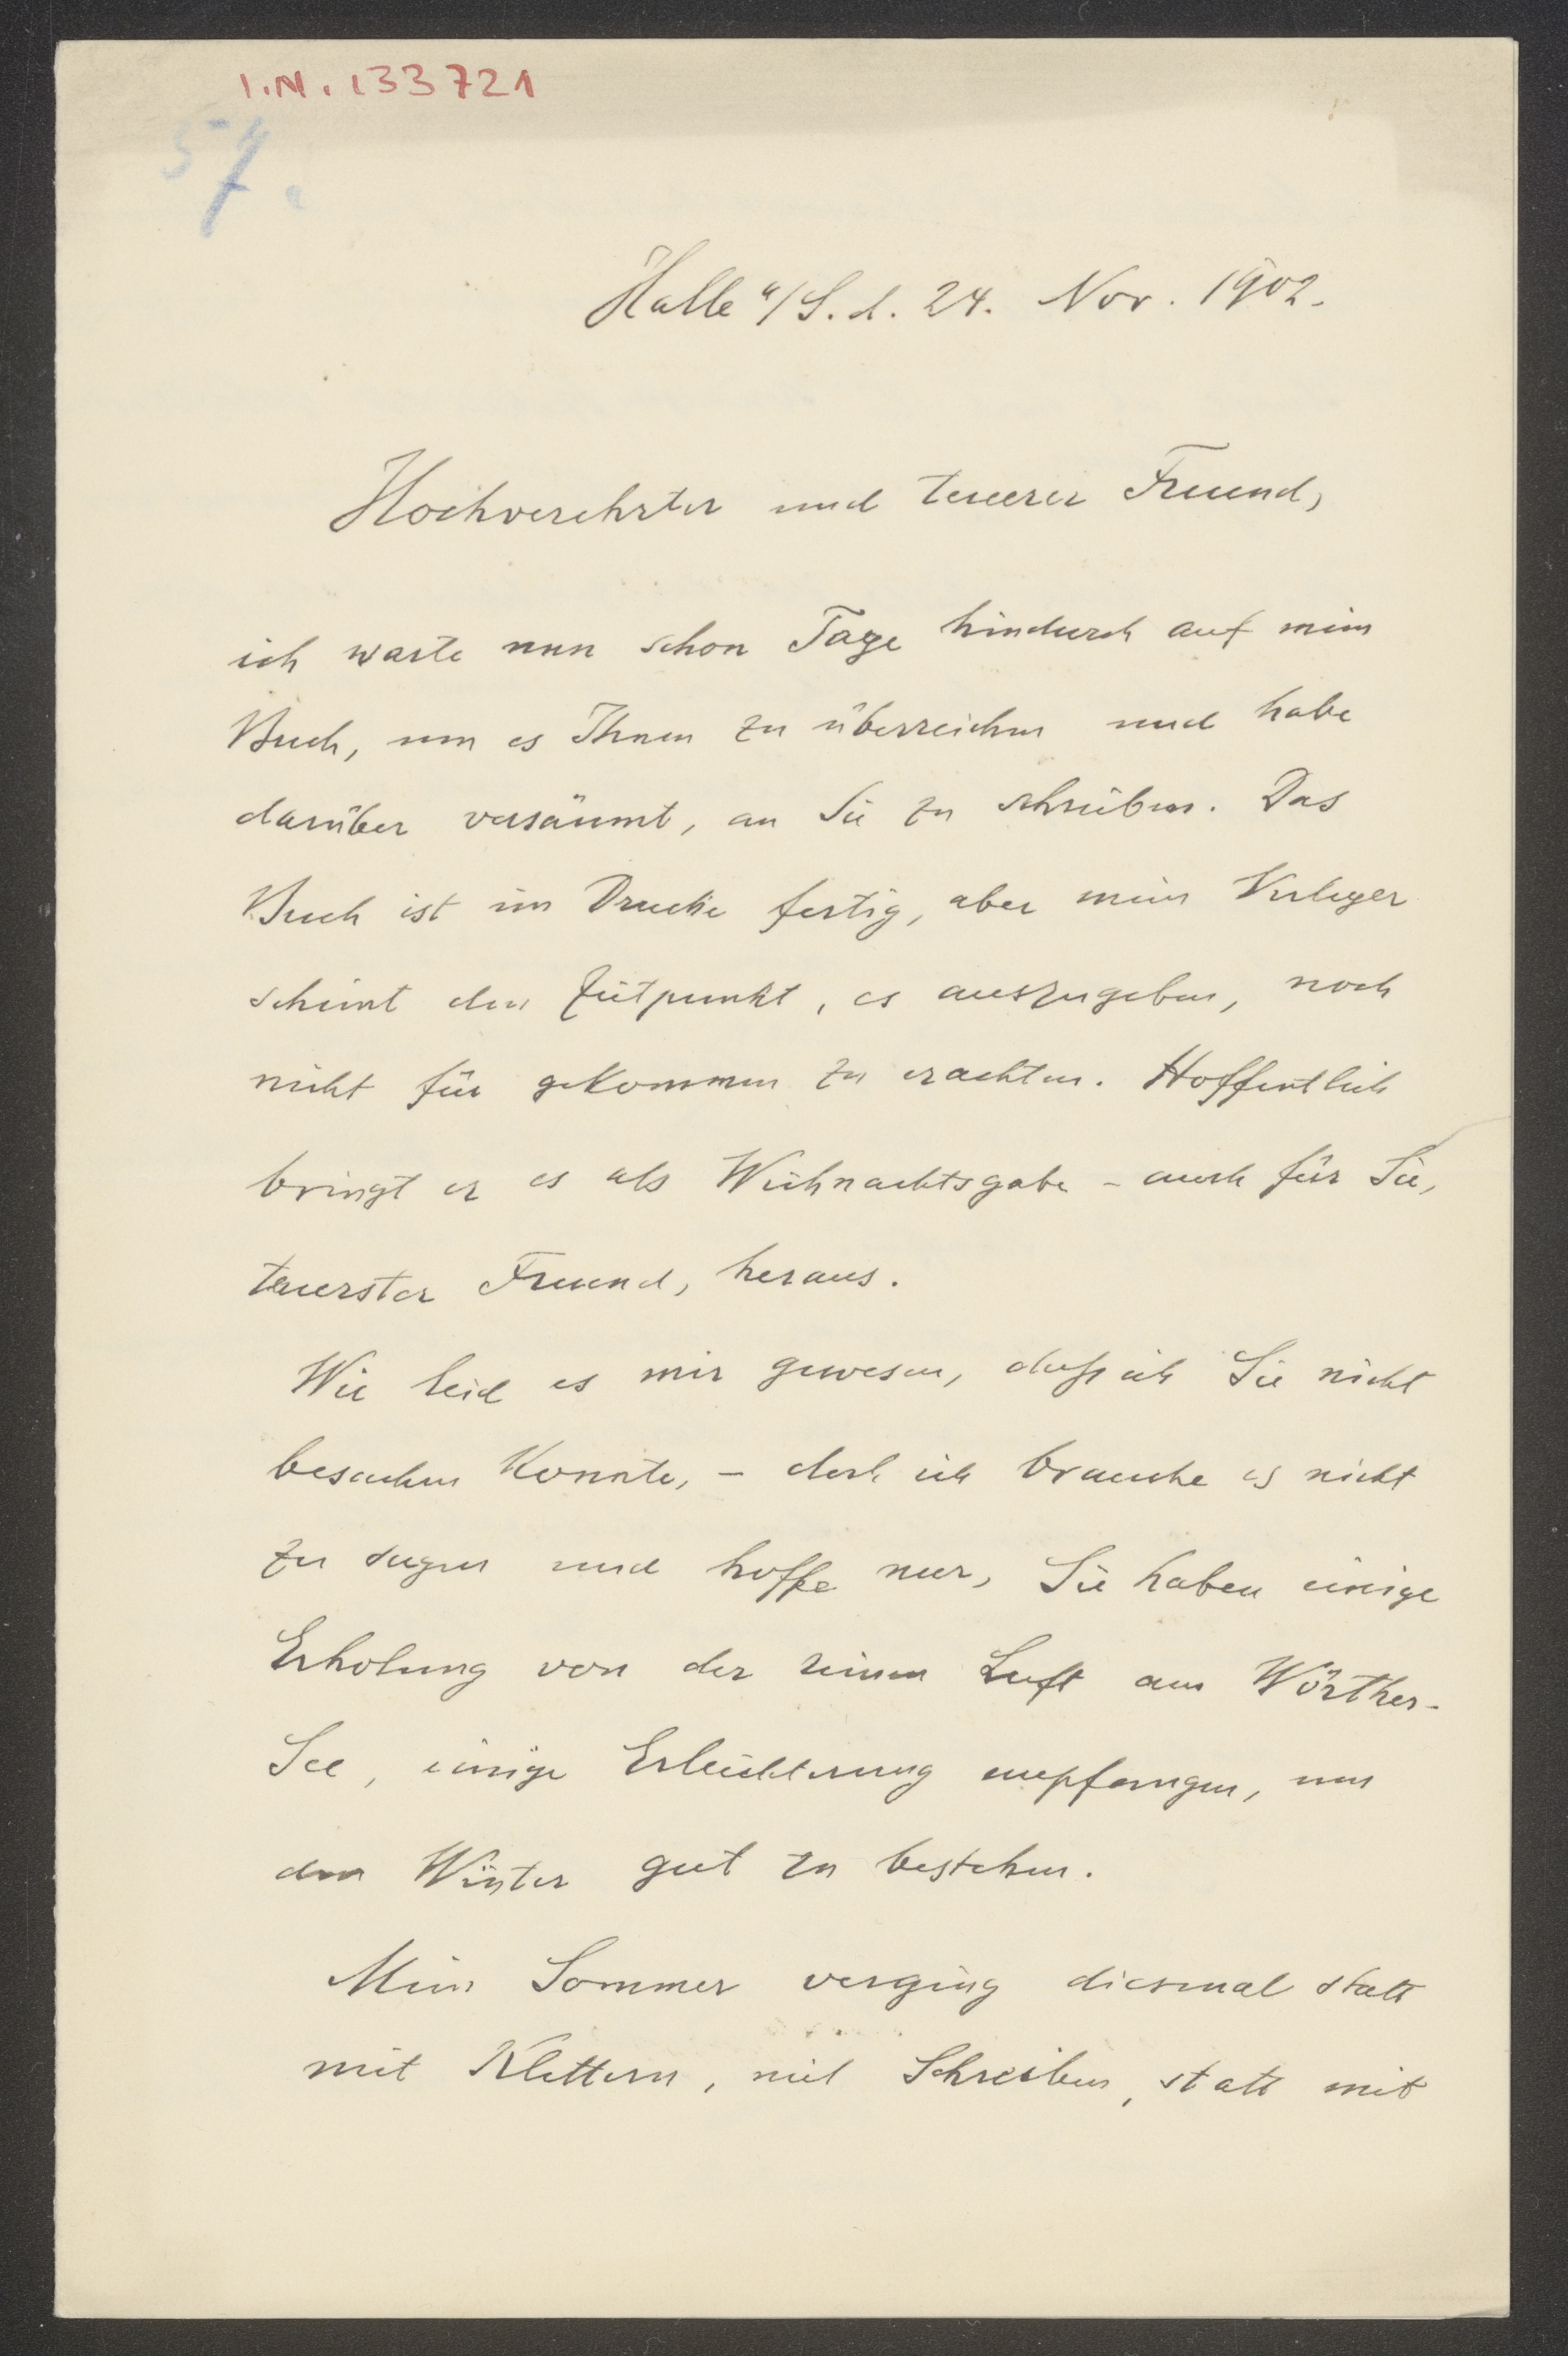 I.N. 133721
57.
Halle a/S. d. 24. Nov. 1902.
Hochverehrter und teuerer Freund,
ich warte nun schon Tage hindurch auf mein
Buch, um es Ihnen zu überreichen und habe
darüber versäumt, an Sie zu schreiben. Das
Buch ist im Drucke fertig, aber mein Verleger
scheint den Zeitpunkt, es auszugeben, noch
nicht für gekommen zu erachten. Hoffentlich
bringt er es als Weihnachtsgabe – auch für Sie,
teuerster Freund, heraus.
Wie leid es mir gewesen, daß ich Sie nicht
besuchen konnte, – doch ich brauche es nicht
zu sagen und hoffe nur, Sie haben einige
Erholung von der reinen Luft am Wörther-
See, einige Erleichterung empfangen, um
den Winter gut zu bestehen.
Mein Sommer verging diesmal statt
mit Klettern, mit Schreiben, statt mit